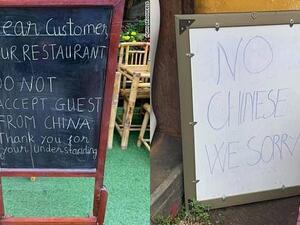 Dear Customer
OUR RESTAURANT
DO NOT
ACCEPT GUEST
FROM CHINA
Thank you for
your understanding
NO
CHINESE
WE SORRY